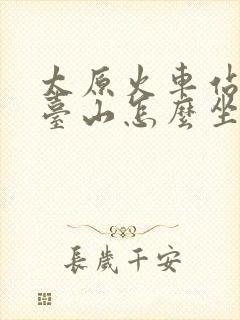 太原火車佔
臺山怎麼坐
長歲千安